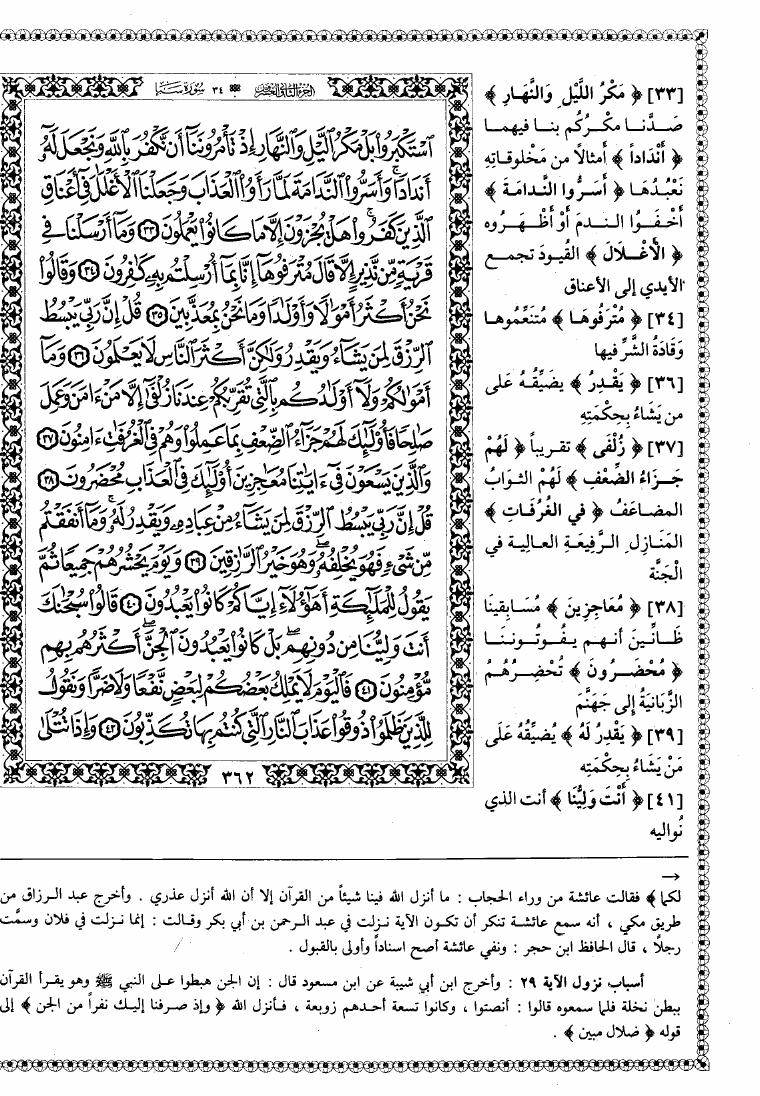 [٣٣] ﴿ مَكْرُ اللَّيْلِ وَالنَّهَارِ ﴾
صَدَّنا مكْرُكُم بنا فيهما
﴿ أَنْدَاداً ﴾ أمثالاً من مَخْلوقاتِهِ
نَعْبُدُهَا ﴿ أَسَرُّوا النَّدامَةَ ﴾
أَخْفَوُا الندمَ أوْ أظْهَرُوه
﴿ الأَغْلَالَ ﴾ القُيودَ تجمع
الأيدي إلى الأعناق
[٣٤] ﴿ مُتْرَفُوهَا ﴾ مُتَنَعِّمُوها
وَقَادَةُ الشَّرِّ فيها
[٣٦] ﴿ يَقْدِرُ ﴾ يضَيِّقُهُ عَلى
من يَشَاءُ بِحِكْمَتِهِ
[٣٧] ﴿ زُلْفَى ﴾ تقريباً ﴿ لَهُمْ
جَزَاءُ الضِّعْفِ ﴾ لَهُمْ الثوابُ
المضاعَفُ ﴿ في الغُرُفَاتِ ﴾
المَنَازِلِ الرَّفيعَةِ العالية في
الْجَنَّة
[٣٨] ﴿ مُعَاجِزِينَ ﴾ مُسَابِقينَا
ظَانِّينَ أنهم يفُوتُوننَا
﴿ مُحْضَرُونَ ﴾ تُحْضِرُهُمُ
الزَّبَانيَةُ إلى جَهَنَّمَ
[٣٩] ﴿ يَقْدِرُ لَهُ ﴾ يُضيِّقُهُ عَلَى
مَنْ يَشَاءُ بِحِكْمَتِه
[٤١] ﴿ أَنْتَ وَلِيُّنَا ﴾ أنت الذي
نُواليه
الجزء الثاني والعشرون ٣٤ سورة سبإ
ٱسْتَكْبَرُوا۟ بَلْ مَكْرُ ٱلَّيْلِ وَٱلنَّهَارِ إِذْ تَأْمُرُونَنَآ أَن نَّكْفُرَ بِٱللَّهِ وَنَجْعَلَ لَهُۥٓ
أَندَادًا ۚ وَأَسَرُّوا۟ ٱلنَّدَامَةَ لَمَّا رَأَوُا۟ ٱلْعَذَابَ وَجَعَلْنَا ٱلْأَغْلَٰلَ فِىٓ أَعْنَاقِ
ٱلَّذِينَ كَفَرُوا۟ ۚ هَلْ يُجْزَوْنَ إِلَّا مَا كَانُوا۟ يَعْمَلُونَ ٣٣ وَمَآ أَرْسَلْنَا فِى
قَرْيَةٍ مِّن نَّذِيرٍ إِلَّا قَالَ مُتْرَفُوهَآ إِنَّا بِمَآ أُرْسِلْتُم بِهِۦ كَٰفِرُونَ ٣٤ وَقَالُوا۟
نَحْنُ أَكْثَرُ أَمْوَٰلًا وَأَوْلَٰدًا وَمَا نَحْنُ بِمُعَذَّبِينَ ٣٥ قُلْ إِنَّ رَبِّى يَبْسُطُ
ٱلرِّزْقَ لِمَن يَشَآءُ وَيَقْدِرُ وَلَٰكِنَّ أَكْثَرَ ٱلنَّاسِ لَا يَعْلَمُونَ ٣٦ وَمَآ
أَمْوَٰلُكُمْ وَلَآ أَوْلَٰدُكُم بِٱلَّتِى تُقَرِّبُكُمْ عِندَنَا زُلْفَىٰٓ إِلَّا مَنْ ءَامَنَ وَعَمِلَ
صَٰلِحًا فَأُو۟لَٰٓئِكَ لَهُمْ جَزَآءُ ٱلضِّعْفِ بِمَا عَمِلُوا۟ وَهُمْ فِى ٱلْغُرُفَٰتِ ءَامِنُونَ ٣٧
وَٱلَّذِينَ يَسْعَوْنَ فِىٓ ءَايَٰتِنَا مُعَٰجِزِينَ أُو۟لَٰٓئِكَ فِى ٱلْعَذَابِ مُحْضَرُونَ ٣٨
قُلْ إِنَّ رَبِّى يَبْسُطُ ٱلرِّزْقَ لِمَن يَشَآءُ مِنْ عِبَادِهِۦ وَيَقْدِرُ لَهُۥ ۚ وَمَآ أَنفَقْتُم
مِّن شَىْءٍ فَهُوَ يُخْلِفُهُۥ ۖ وَهُوَ خَيْرُ ٱلرَّٰزِقِينَ ٣٩ وَيَوْمَ يَحْشُرُهُمْ جَمِيعًا ثُمَّ
يَقُولُ لِلْمَلَٰٓئِكَةِ أَهَٰٓؤُلَآءِ إِيَّاكُمْ كَانُوا۟ يَعْبُدُونَ ٤٠ قَالُوا۟ سُبْحَٰنَكَ
أَنتَ وَلِيُّنَا مِن دُونِهِم ۖ بَلْ كَانُوا۟ يَعْبُدُونَ ٱلْجِنَّ ۖ أَكْثَرُهُم بِهِم
مُّؤْمِنُونَ ٤١ فَٱلْيَوْمَ لَا يَمْلِكُ بَعْضُكُمْ لِبَعْضٍ نَّفْعًا وَلَا ضَرًّا وَنَقُولُ
لِلَّذِينَ ظَلَمُوا۟ ذُوقُوا۟ عَذَابَ ٱلنَّارِ ٱلَّتِى كُنتُم بِهَا تُكَذِّبُونَ ٤٢ وَإِذَا تُتْلَىٰ
٣٦٢
لكما ﴾ فقالت عائشة من وراء الحجاب : ما أنزل الله فينا شيئاً من القرآن إلا أن الله أنزل عذري . وأخرج عبد الرزاق من
طريق مكي ، أنه سمع عائشة تنكر أن تكون الآية نزلت في عبد الرحمن بن أبي بكر وقالت : إنما نزلت في فلان وسمَّت
رجلًا ، قال الحافظ ابن حجر : ونفي عائشة أصح اسناداً وأولى بالقبول .
أسباب نزول الآية ٢٩ : وأخرج ابن أبي شيبة عن ابن مسعود قال : إن الجن هبطوا على النبي ﷺ وهو يقرأ القرآن
ببطن نخلة فلما سمعوه قالوا : أنصتوا ، وكانوا تسعة أحدهم زوبعة ، فأنزل الله ﴿ وإذ صرفنا إليك نفراً من الجن ﴾ إلى
قوله ﴿ ضلال مبين ﴾ .